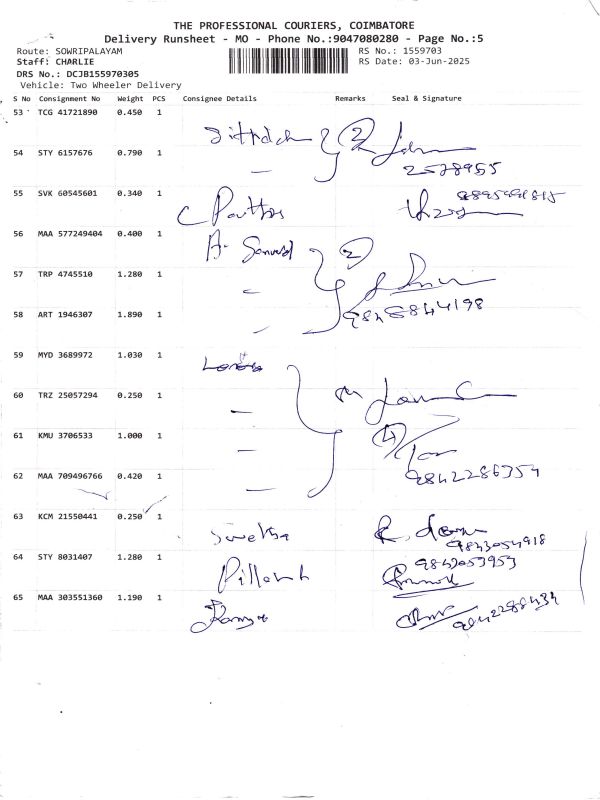 THE PROFESSIONAL COURIERS, COIMBATORE
Delivery Runsheet - MO - Phone No.:9047080280 - Page No.:5
Route: SOWRIPALAYAM
RS No.: 1559703
Staff: CHARLIE
RS Date: 03-Jun-2025
DRS No.: DCJB155970305
Vehicle: Two Wheeler Delivery
S No Consignment No Weight PCS Consignee Details Remarks Seal & Signature
53 TCG 41721890 0.450 1
2
54 STY 6157676 0.790 1
2578955
55 SVK 60545601 0.340 1
56 MAA 577249404 0.400 1
2
57 TRP 4745510 1.280 1
58 ART 1946307 1.890 1
59 MYD 3689972 1.030 1
60 TRZ 25057294 0.250 1
61 KMU 3706533 1.000 1
4
62 MAA 709496766 0.420 1
9842286354
63 KCM 21550441 0.250 1
Swetha
9843054918
64 STY 8031407 1.280 1
9843053953
65 MAA 303551360 1.190 1
Ramya
9842288434